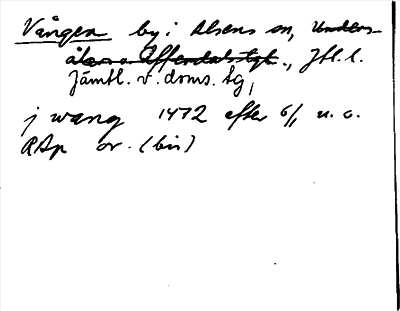 Vången by i Alsens sn, Unders-
åkers o Offerdals tgl., Jtl. l.
Jämtl. v. doms. tg,
j wang 1472 efter 6/1 u. o.
RAp or. (bis)